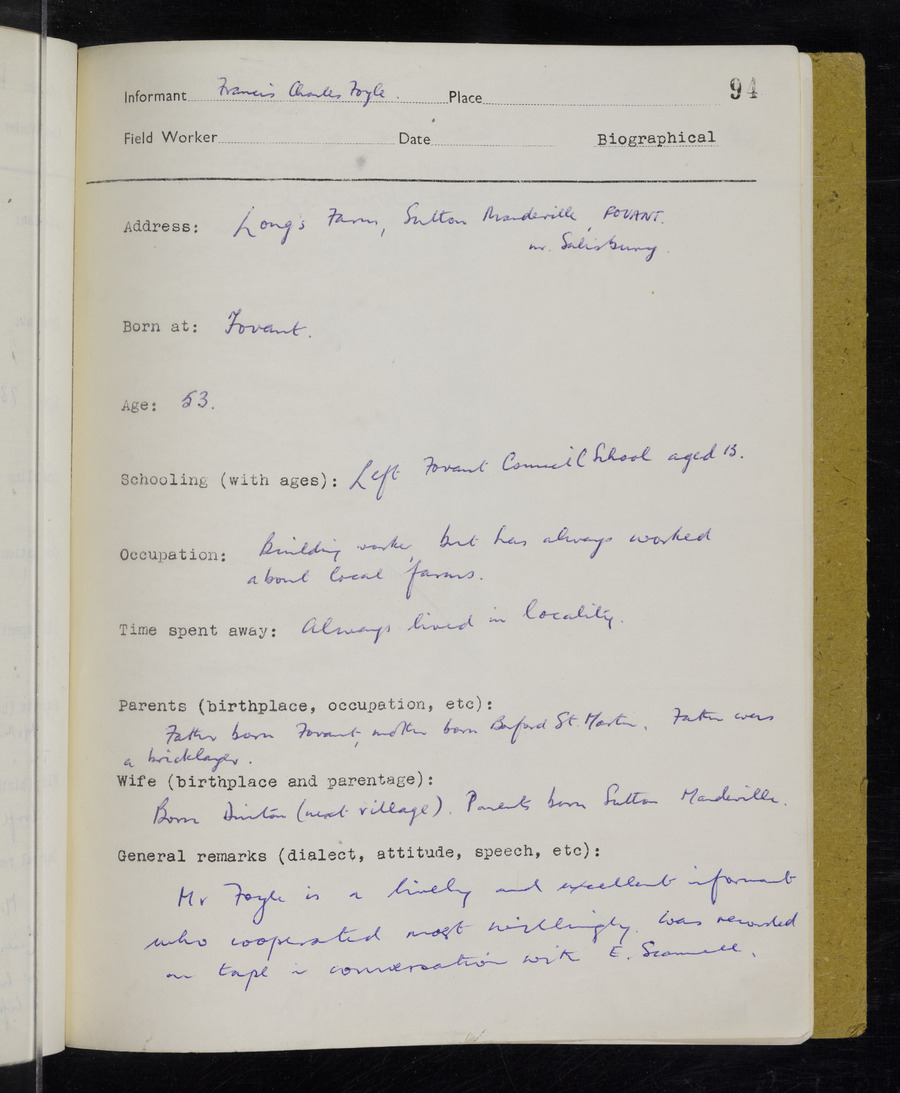 94
Informant Francis Charles Foyle. Place
Field Worker Date Biographical
Address: Long's Farm, Sutton Mandeville, FOVANT.
nr. Salisbury.
Born at: Fovant.
Age: 53.
Schooling (with ages): Left Fovant Council School aged 13.
Occupation: Building worker, but has always worked
about local farms.
Time spent away: Always lived in locality.
Parents (birthplace, occupation, etc):
Father born Fovant, mother born Barford St. Martin. Father was
a bricklayer.
Wife (birthplace and parentage):
Born Dinton (next village). Parents born Sutton Mandeville.
General remarks (dialect, attitude, speech, etc):
Mr Foyle is a lively and excellent informant
who cooperated most willingly. Was recorded
on tape in conversation with E. Scammell.